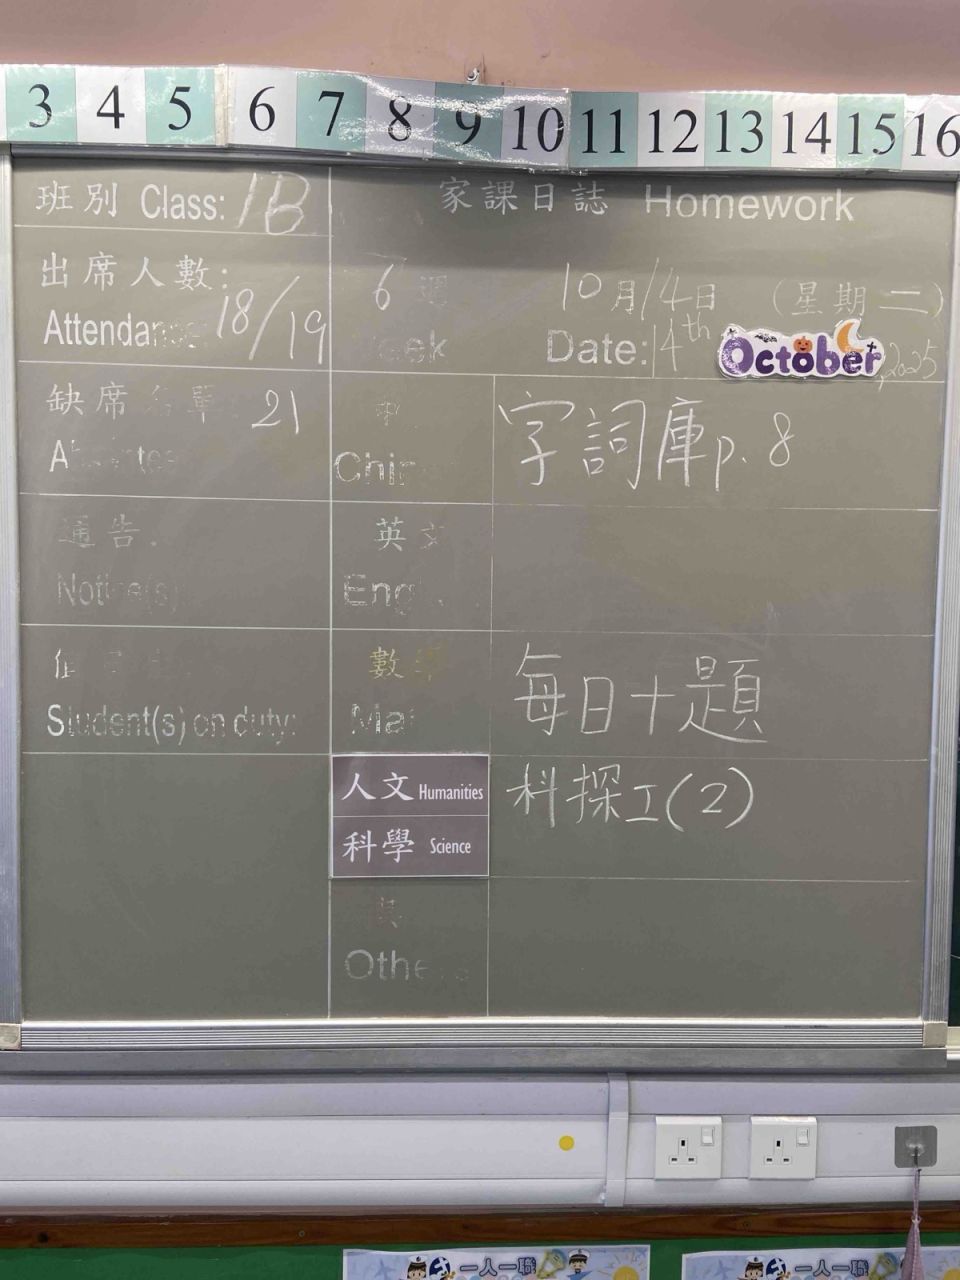 3 4 5 6 7 8 9 10 11 12 13 14 15 16
班別 Class: 1B
家課日誌 Homework
出席人數:
Attendance: 18/19
6 週
10月14日 (星期二)
eek
Date: 14th October, 2025
缺席名單: 21
中
Chin
字詞庫p. 8
通告:
Notice(s)
英文
Eng
數學
Mat
每日十題
Student(s) on duty:
人文 Humanities
科學 Science
科探工(2)
其
Othe
一人一職
一人一職